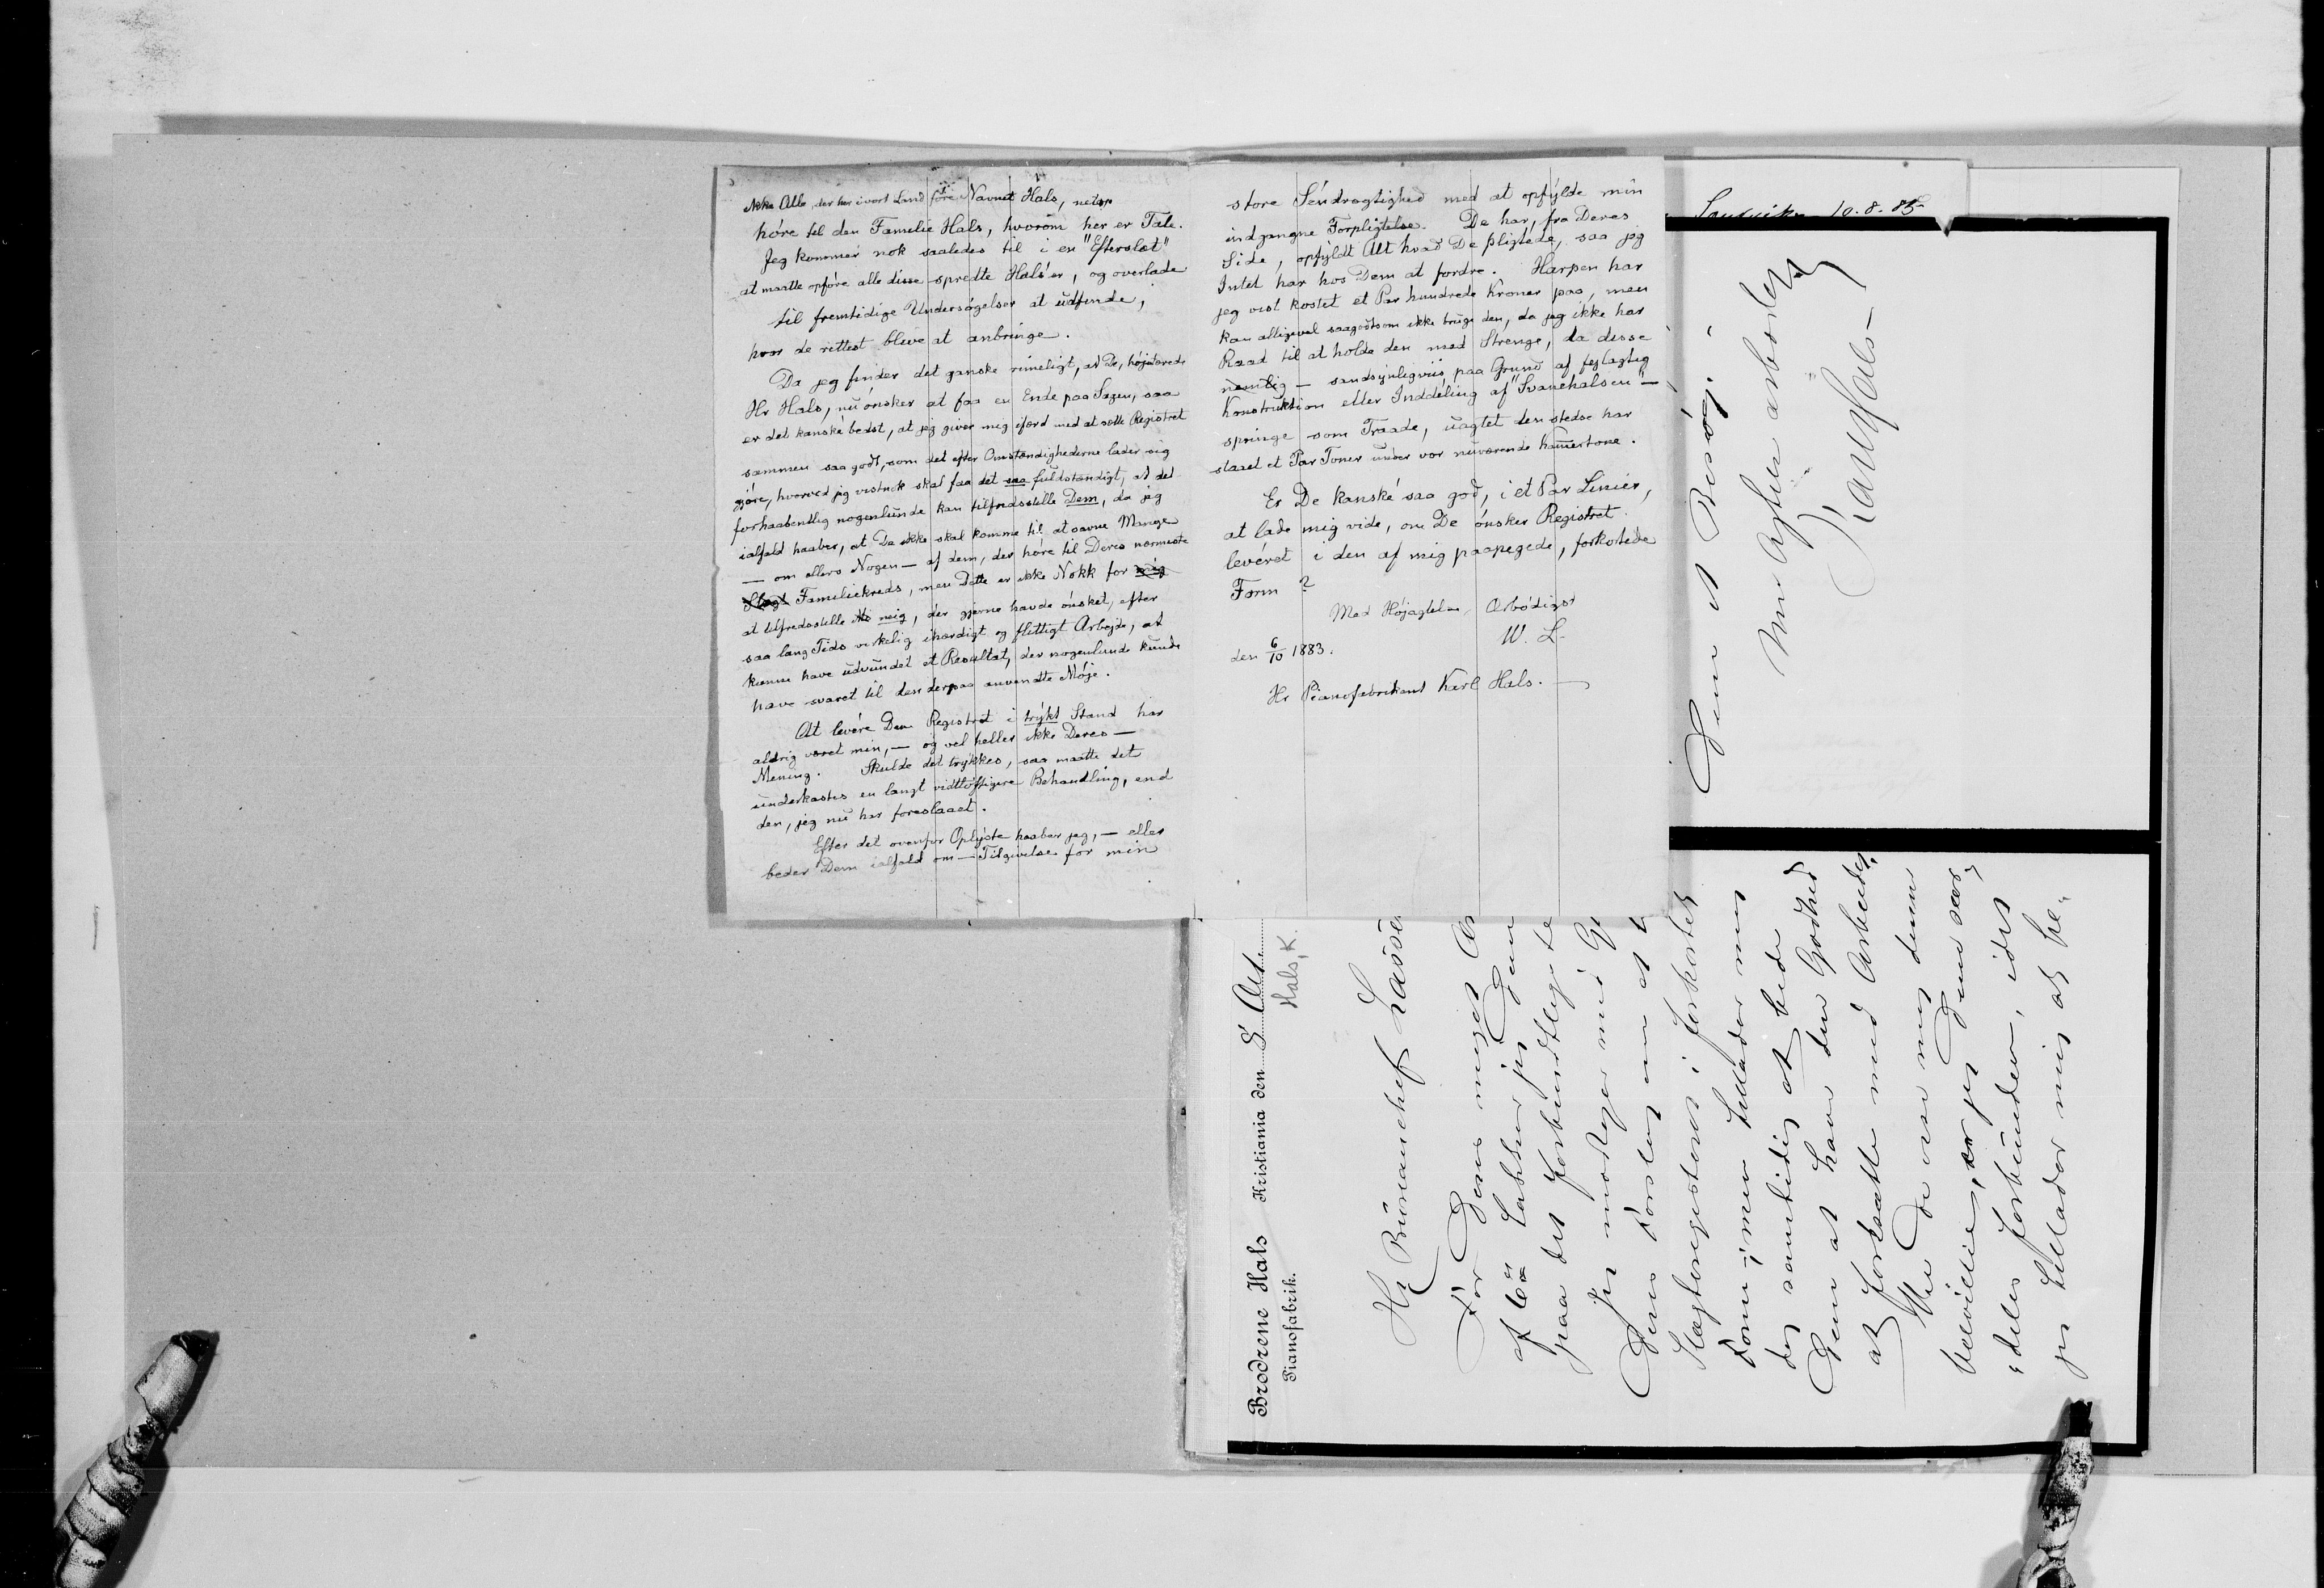 ikke Alle, der her i vort Land føre Navnet Hals, netop
høre til den Familie Hals, hvorom her er Tale.
Jeg kommer nok saaledes til i en "Efterslæt"
at maatte opføre alle disse spredte Hals'er, og overlade
til fremtidige Undersøgelser at udfinde,
hvor de rettest bleve at anbringe.
Da jeg finder det ganske rimeligt, at De, højstærede
Hr Hals, nu ønsker at faa en Ende paa Sagen, saa
er det kanské bedst, at jeg giver mig ifærd med at sætte Registret
sammen saa godt, som det efter Omstændighederne lader sig
gjøre, hvorved jeg vistnok skal faa det saa fuldstændigt, at det
forhaabentlig nogenlunde kan tilfredsstille Dem, da jeg
ialfald haaber, at De ikke skal komme til at savne Mange
— om ellers Nogen — af dem, der høre til Deres nærmeste
Slægt Familiekreds, men Dette er ikke Nokk for mig
at tilfredsstille mig, der gjerne havde ønsket, efter
saa lang Tids virkelig ihærdigt og flittigt Arbejde, at
kunne have udvundet et Resultat, der nogenlunde kunde
have svaret til den derpaa anvendte Møje.
At levére Dem Registret i trykt Stand har
aldrig været min, — og vel heller ikke Deres —
Mening. Skulde det trykkes, saa maatte det
underkastes en langt vidtløftigere Behandling, end
den, jeg nu har foreslaaet.
Efter det ovenfor Oplyste haaber jeg, — eller
beder Dem ialfald om — Tilgivelse for min
store Séndrægtighed med at opfylde min
indgangne Forpligtelse. De har, fra Deres
Side, opfyldt Alt hvad De pligtéde, saa jeg
Intet har hos Dem at fordre. Harpen har
jeg vist kostet et Par hundrede Kroner paa, men
kan alligevel saagodtsom ikke bruge den, da jeg ikke har
Raad til at holde den med Strenge, da disse
nemlig — sandsynligviis paa Grund af fejlagtig
Konstruktion eller Inddéling af "Svanehalsen" —
springe som Traade, uagtet den stedse har
staaet et Par Toner under vor nuværende Kammertone.
Er De kanské saa god, i et Par Linier,
at lade mig vide, om De ønsker Registret
levéret i den af mig paapegede, forkortede
Form?
Med Højagtelse, Ærbødigst
W. L.
den 6/10 1883.
Hr Pianofabrikant Karl Hals. —
Sandviken 10.8.85
Dem et Besøg. —
Med Agtelse ærbødigst
Karl Hals —
Brødrene Hals Kristiania den 8 Oct.
Pianofabrik.
Hals, K.
Hr Büreauchef Lassen
For Deres meget
af 6te takker jeg Dem
paa det forbindtligste
Jeg modtager med
Deres Forslag om at
Slægtsregisteret i forkortet
Form; men tillader mig
dog samtidig at bede
Dem at have den Godhed
at fortsætte med Arbeidet.
Vil De vise mig denne
velvillie, er jeg Dem sær
deles forbunden, idet
jeg tillader mig at be-